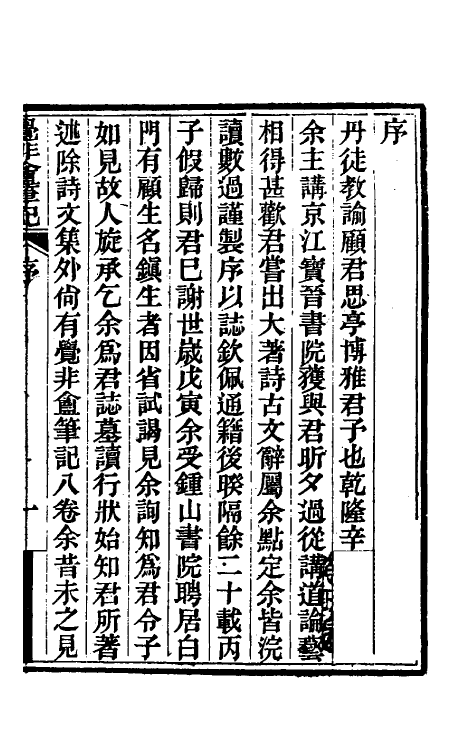 序
丹徒教諭顧君思亭博雅君子也乾隆辛
余主講京江寶晉書院獲與君昕夕過從講道論藝
相得甚歡君嘗出大著詩古文辭屬余點定余皆浣
讀數過謹製序以誌欽佩通籍後暌隔餘二十載丙
子假歸則君已謝世歲戊寅余受鍾山書院聘居白
門有顧生名鎮生者因省試謁見余詢知爲君令子
如見故人旋承乞余爲君誌墓讀行狀始知君所著
述除詩文集外尙有覺非盦筆記八卷余昔未之見
覺非盦筆記 序 一